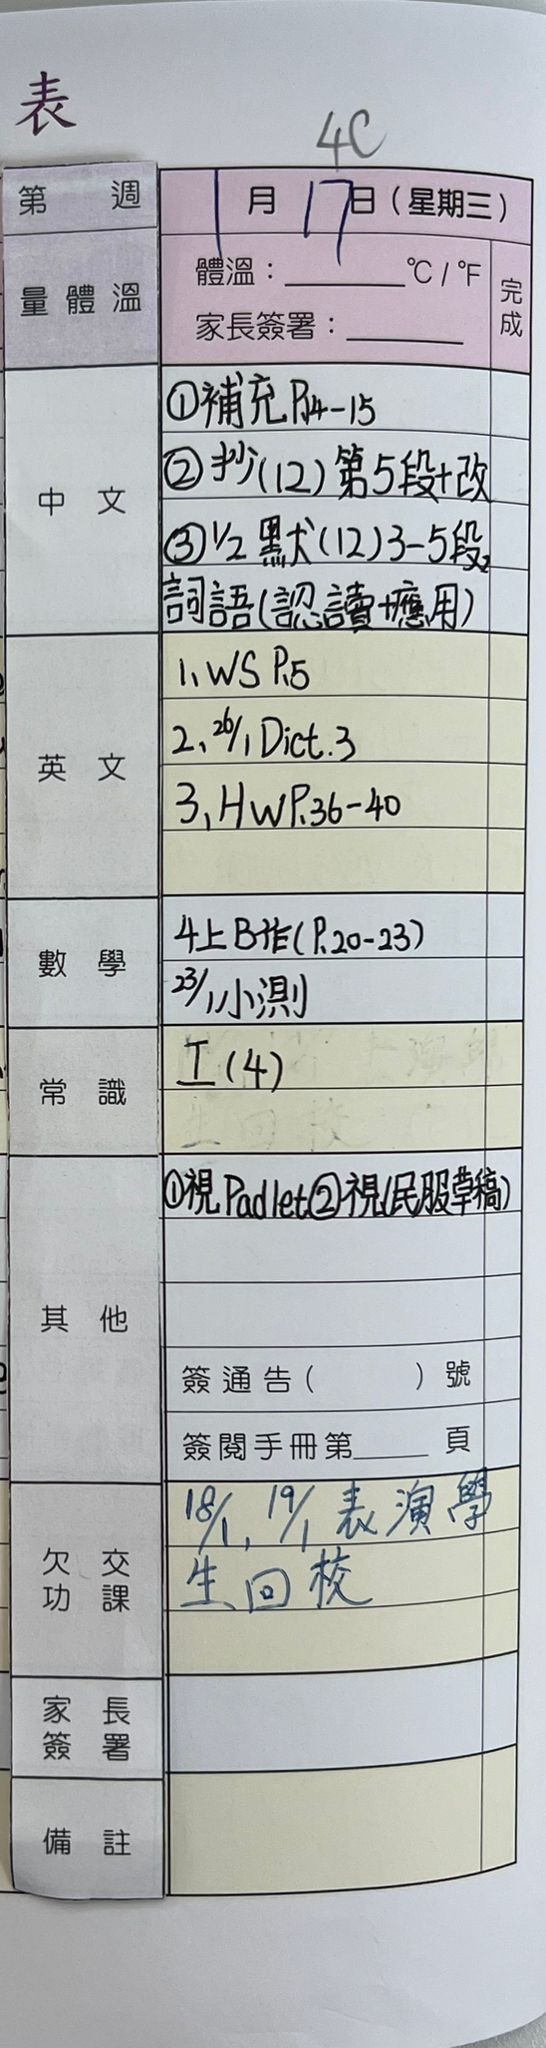 表
4C
第 週 1月17日（星期三）
量體溫 體溫：______°C / °F 完成
家長簽署：______
中文 ①補充P.14-15
②抄(12)第5段+改
③1/2默(12)3-5段
詞語(認讀+應用)
英文 1, WS P.5
2, 26/1 Dict.3
3, HW P.36-40
數學 4上B作(P.20-23)
23/1小測
常識 工(4)
其他 ①視Padlet②視(民服草稿)
簽通告（ ）號
簽閱手冊第____頁
欠交功課 18/1, 19/1 表演學
生回校
家長簽署
備註